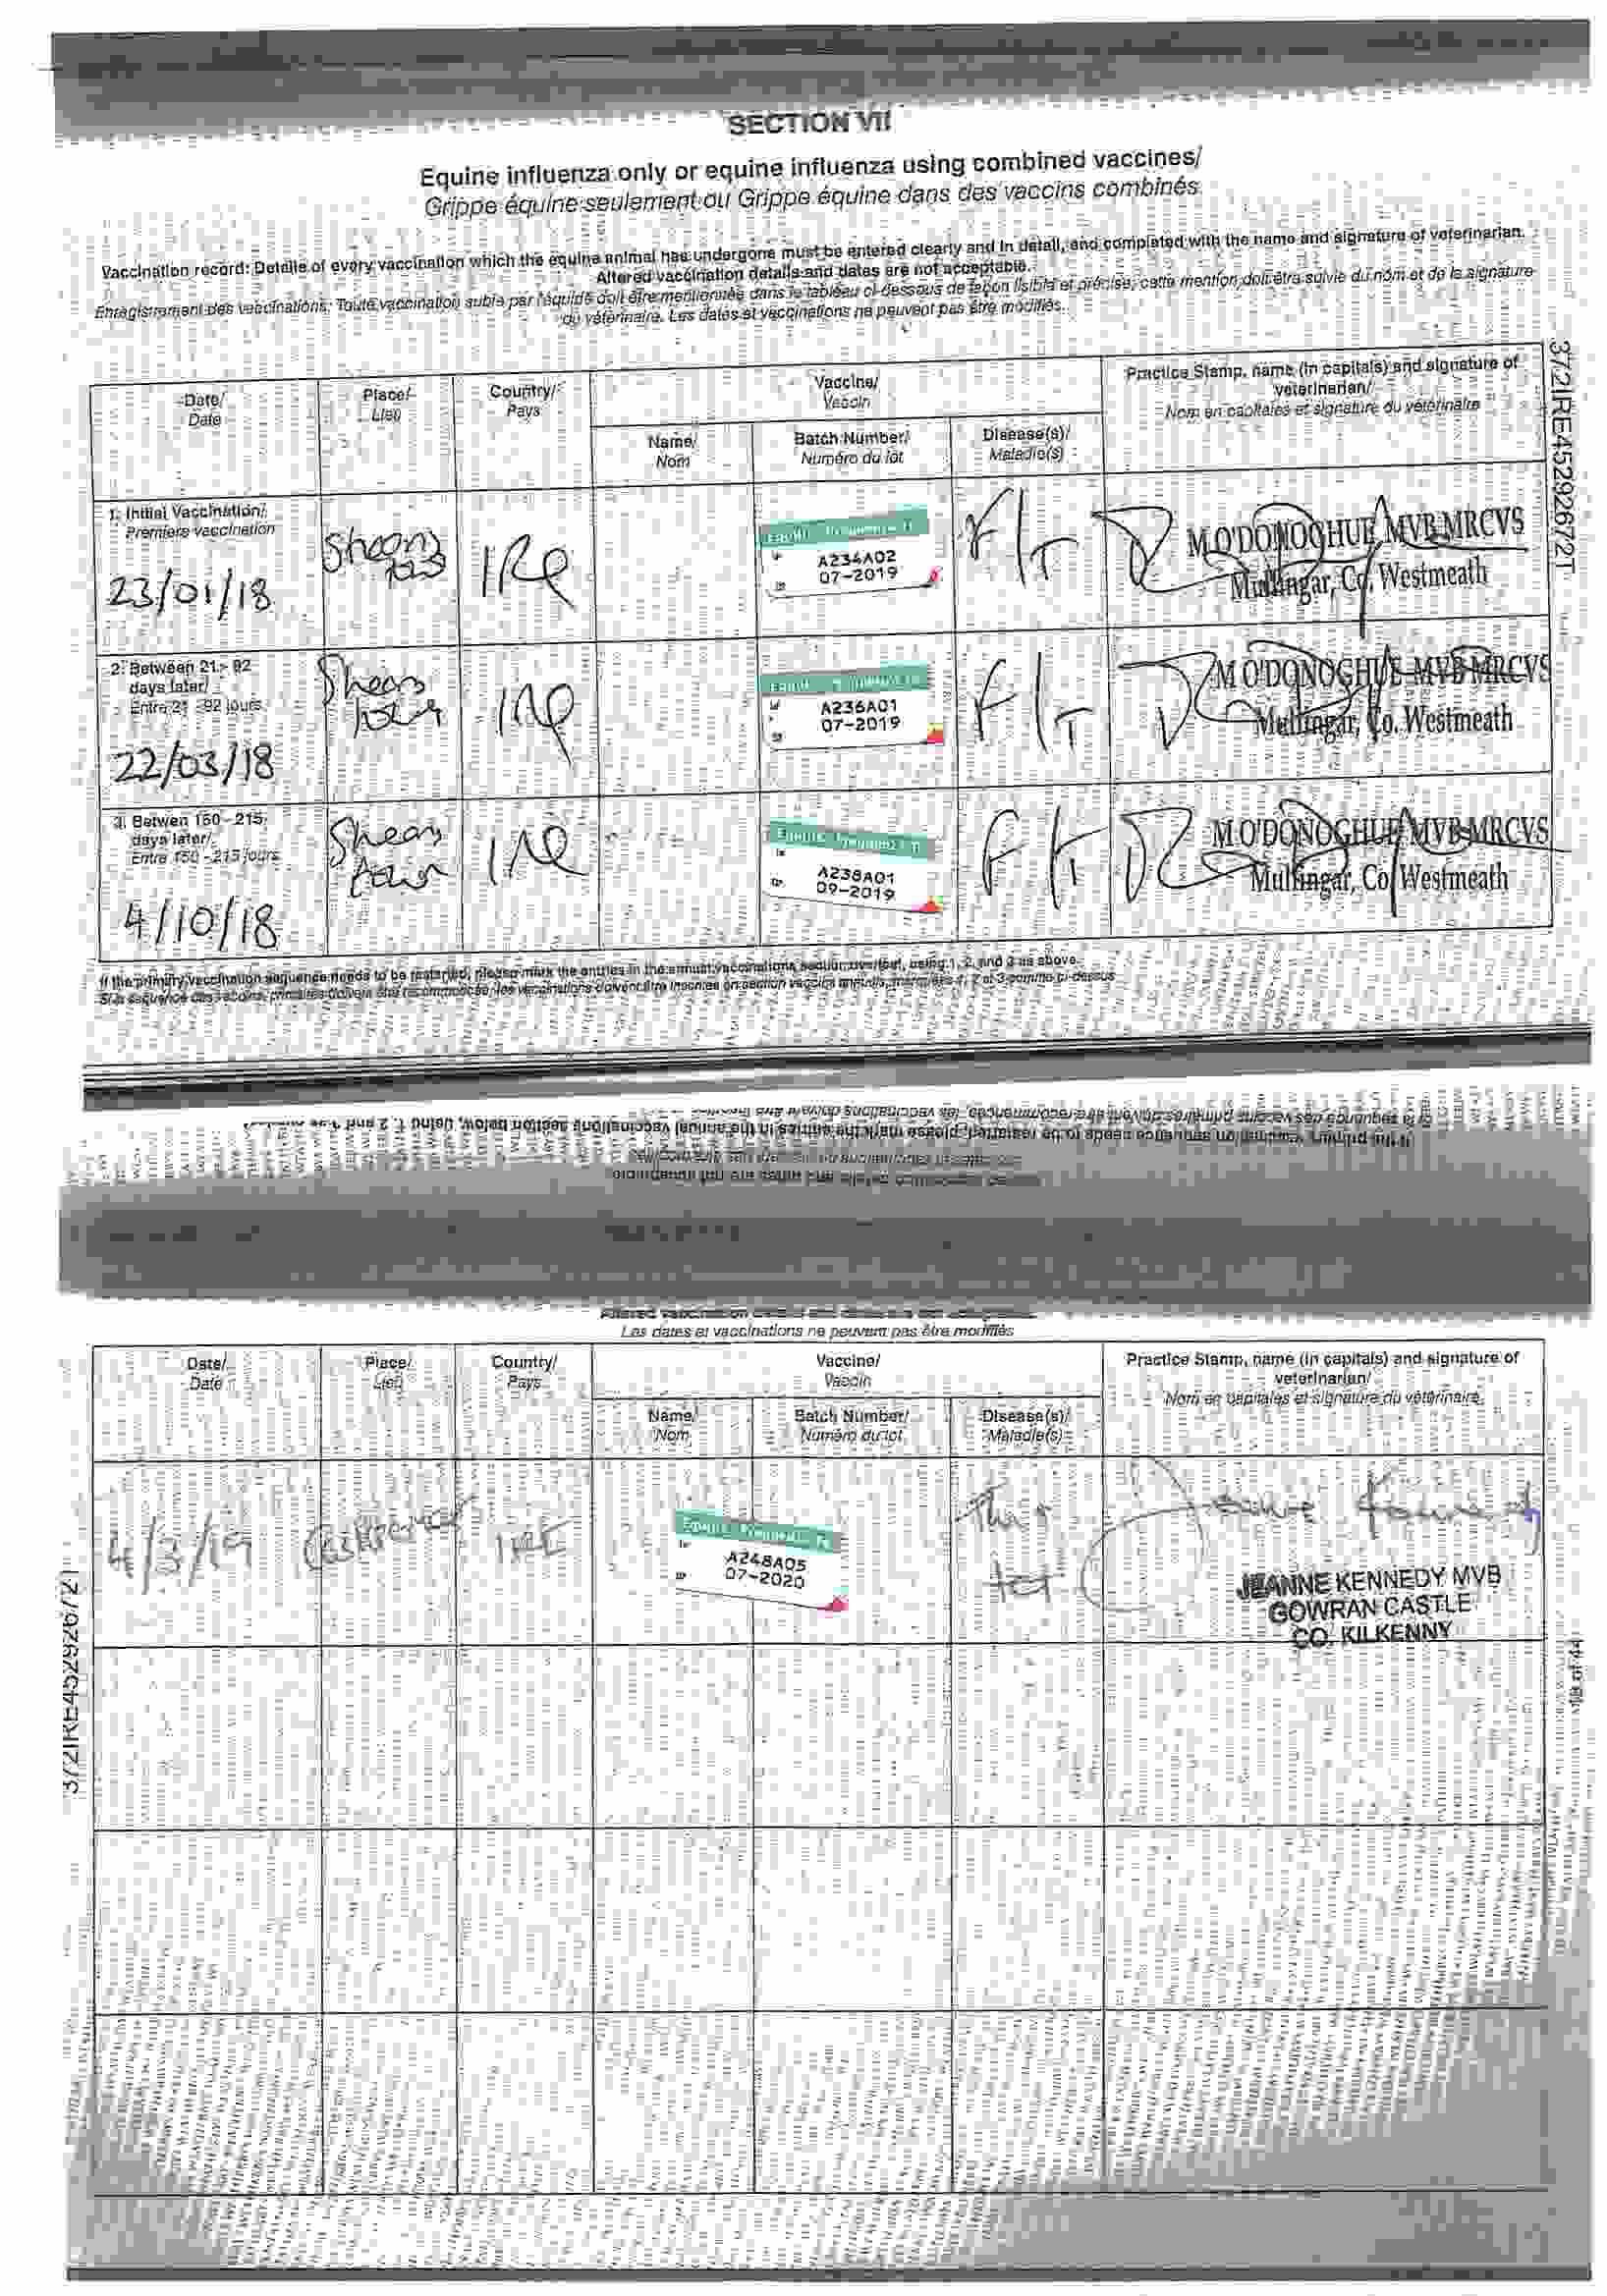 SECTION VII
Equine influenza only or equine influenza using combined vaccines/
Grippe équine seulement ou Grippe équine dans des vaccins combinés
Vaccination record: Details of every vaccination which the equine animal has undergone must be entered clearly and in detail, and completed with the name and signature of veterinarian.
Altered vaccination details and dates are not acceptable.
Enregistrement des vaccinations: Toute vaccination subie par l'équidé doit être mentionnée dans le tableau ci-dessous de façon lisible et précise, cette mention doit être suivie du nom et de la signature
du vétérinaire. Les dates et vaccinations ne peuvent pas être modifiés.
372IRE45292672T
Date/
Date
Place/
Lieu
Country/
Pays
Vaccine/
Vaccin
Name/
Nom
Batch Number/
Numéro du lot
Disease(s)/
Maladie(s)
Practice Stamp, name (in capitals) and signature of
veterinarian/
Nom en capitales et signature du vétérinaire
1. Initial Vaccination/
Premiere vaccination
23/01/18
Shears
town
IRe
A234A02
07-2019
F/T
M O'DONOGHUE MVB MRCVS
Mullingar, Co. Westmeath
2. Between 21 - 92
days later/
Entre 21 - 92 jours
22/03/18
Shears
town
IRe
A236A01
07-2019
F/T
M O'DONOGHUE MVB MRCVS
Mullingar, Co. Westmeath
3. Betwen 150 - 215
days later/
Entre 150 - 215 jours
4/10/18
Shears
town
IRe
A238A01
09-2019
F/T
M O'DONOGHUE MVB MRCVS
Mullingar, Co. Westmeath
If the primary vaccination sequence needs to be restarted, please mark the entries in the annual vaccinations section overleaf, using 1, 2, and 3 as above.
If the primary vaccination sequence needs to be restarted, please mark the entries in the annual vaccinations section below, using 1, 2 and 3
Les dates et vaccinations ne peuvent pas être modifiés
Date/
Date
Place/
Lieu
Country/
Pays
Vaccine/
Vaccin
Name/
Nom
Batch Number/
Numéro du lot
Disease(s)/
Maladie(s)
Practice Stamp, name (in capitals) and signature of
veterinarian/
Nom en capitales et signature du vétérinaire
4/3/19
IRE
A248A05
07-2020
Flu +
tet
Jeanne Kennedy
JEANNE KENNEDY MVB
GOWRAN CASTLE
CO. KILKENNY
372IRE45292672T